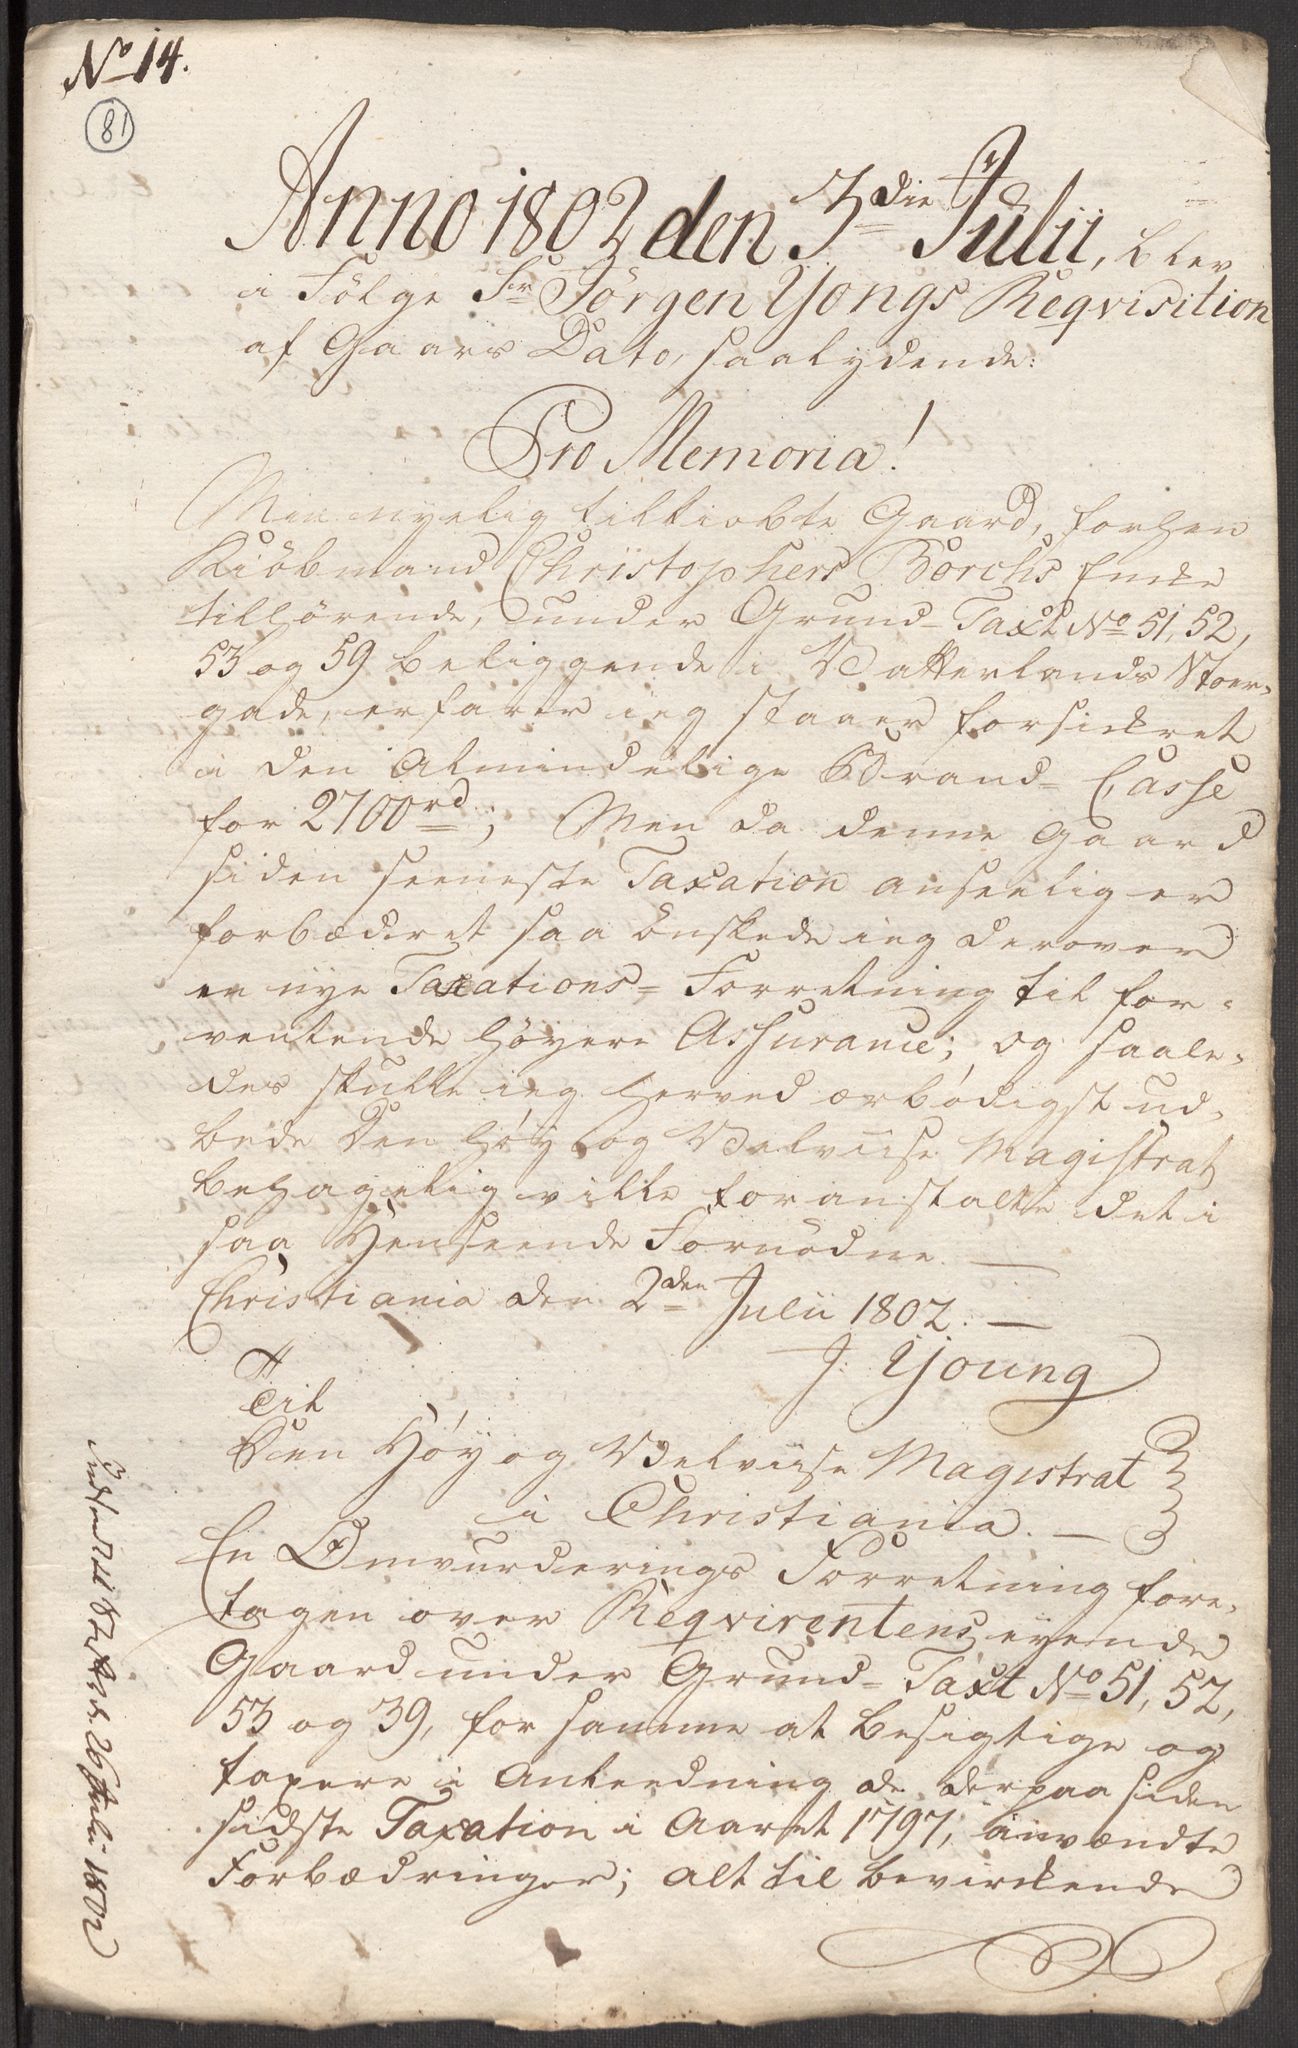 No 14.
81
Anno 1802 den 3die Julii, blev
i Følge Sr Jörgen Yongs Reqvisition
af Gaars Dato, saalydende:
Pro Memoria!
Min nyelig tilkiøbte Gaard, forhen
Kiöbmand Christophers Borchs Enke
tilhørende, under Grund-Taxt No 51, 52,
53 og 59 beliggende i Vatterlands Stoer-
gade, erfarer ieg staaer forsickret
i den Almindelige Brand-Casse
for 2700 rd; Men da denne Gaard
siden seeneste Taxation anseelig er
forbædret saa ønskede ieg derover
en nye Taxations-Forretning til for-
ventende høyere Assurance; og saale-
des skulle ieg herved ærbödigst ud-
bede Den Høy og Velviise Magistrat
behagelig ville foranstalte det i
saa Henseende Fornødne. —
Christiania den 2den Julii 1802. —
J. Young
Til
Den Høy og Velviise Magistrat
i Christiania. —
En Omvurderings Forretning fore-
tagen over Reqvirentens eyende
Gaard under Grund-Taxt No 51, 52,
53 og 39, for samme at besigtige og
taxere i Anledning de derpaa siden
sidste Taxation i Aaret 1797, anvændte
Forbædringer; alt til bevirckende
26 Julii 1802